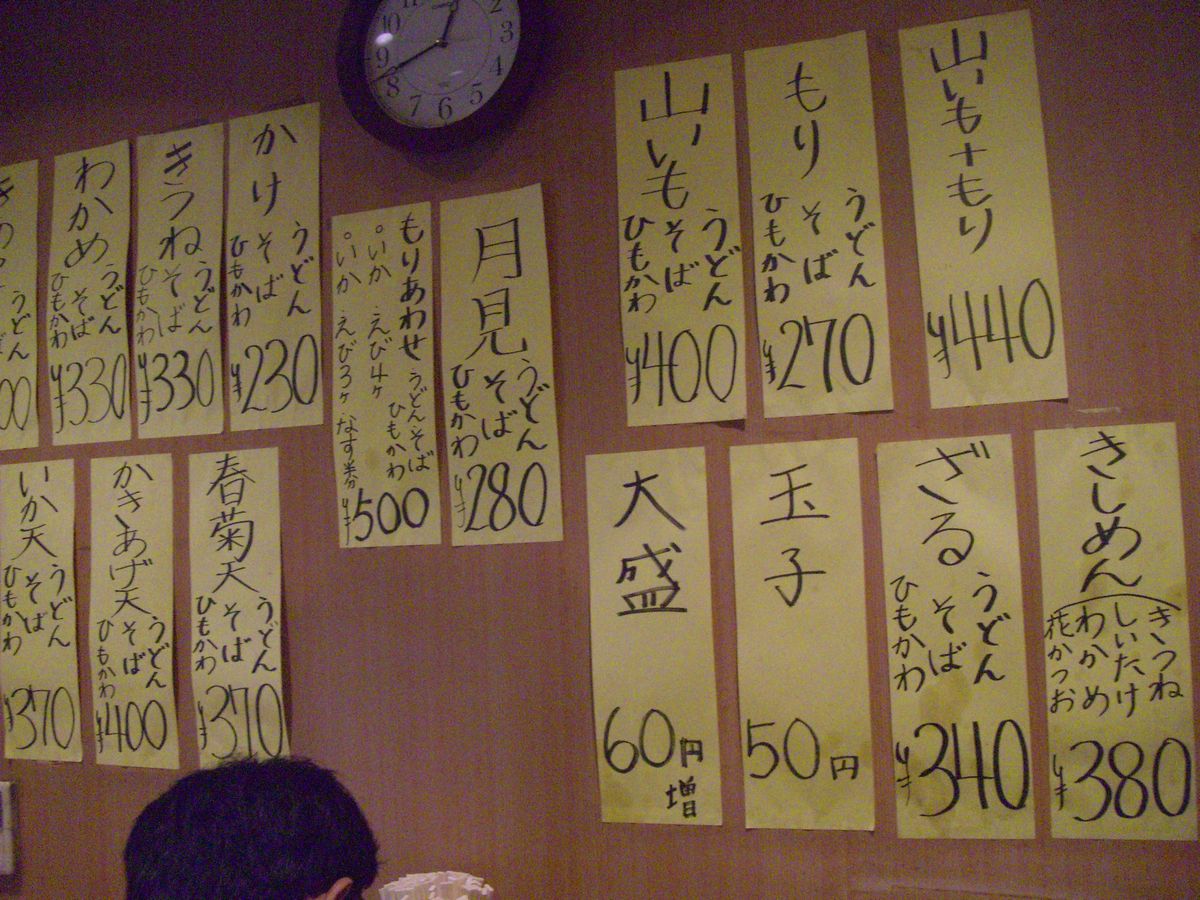 山いも+もり
¥440
もり
うどん
そば
ひもかわ
¥270
山いも
うどん
そば
ひもかわ
¥400
月見
うどん
そば
ひもかわ
¥280
もりあわせ
うどんそば
ひもかわ
°いか えび4ヶ
°いか えび3ヶ なす
¥500
かけ
うどん
そば
ひもかわ
¥230
きつね
うどん
そば
ひもかわ
¥330
わかめ
うどん
そば
ひもかわ
¥330
うどん
きしめん
きつね
しいたけ
わかめ
花かつお
¥380
ざる
うどん
そば
ひもかわ
¥340
玉子
50円
大盛
60円
増
春菊天
うどん
そば
ひもかわ
¥370
かきあげ天
うどん
そば
ひもかわ
¥400
いか天
うどん
そば
ひもかわ
¥370
10
9
8
7
6
5
4
3
2